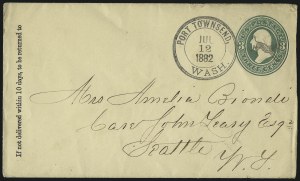 If not delivered within 10 days, to be returned to
PORT TOWNSEND,
JUL
12
1892
WASH.
Mrs Amelia Biondi
Care John Leary Esqr
Seattle
W. T.